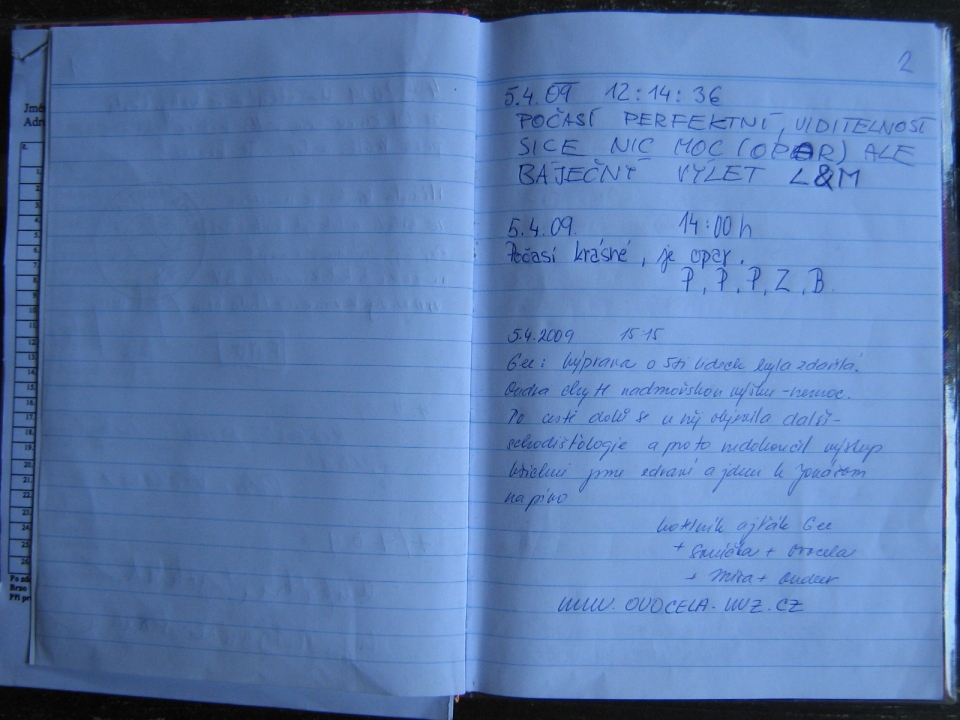 2
5.4.09 12:14:36
POČASÍ PERFEKTNÍ, VIDITELNOST
SICE NIC MOC (OPAR) ALE
BÁJEČNÝ VÝLET L&M
5.4.09. 14:00 h
Počasí krásné, je opar.
P, P, P, Z, B.
5.4.2009 15:15
Gee: Výprava o 5ti lidech byla zdařilá.
Ondra chytl nadmořskou výšku - nemoc.
Po cestě dolů se u něj objevila další -
schodištologie a proto nedokončil výstup
jsme zdraví a jdem k
na pivo
ajťák Gee
+ + Ovocela
+ Míra + Ondra
WWW.OVOCELA.WZ.CZ
Jmé
Adr